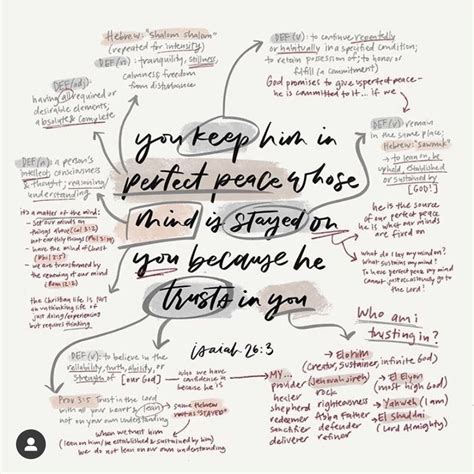 Hebrew: "shalom shalom"
(repeated for intensity)
DEF(n): tranquility, stillness,
calmness, freedom
from disturbance
DEF(v): to continue repeatedly
or habitually in a specified condition;
to retain possession of; to honor or
fulfill (a commitment)
God promises to give us perfect peace-
he is committed to it... if we
DEF(adj):
having all required or
desirable elements;
absolute & complete
DEF(v): remain
in the same place;
Hebrew:
→ to lean on, be
uphold, established
or sustained by
[GOD!]
DEF(n): a person's
intellect, consciousness
& thought; reasoning,
understanding
it's a matter of the mind:
- set our minds on
things above (Col 3:2)
not earthly things
- have the mind of Christ
- we are transformed by
the renewing of our mind
(Rom 12:2)
the Christian life is not
an unthinking life of
just doing/experiencing
but requires thinking
he is the source
of our perfect peace
he is what our minds
are fixed on
what do I lay my mind on?
what sustains my mind?
To have perfect peace my mind
cannot just occasionally go to
the Lord!
you keep him in
perfect peace whose
mind is stayed on
you because he
trusts in you
isaiah 26:3
DEF(v): to believe in the
reliability, truth, ability, or
strength of [our God]
who we have
confidence in
because he is
Prov 3:5 Trust in the Lord
with all your heart & lean
not on your own understanding
same Hebrew
root as "STAYED"
when we trust him
(lean on him/be established & sustained by him)
we do not lean on our own understanding
Who am i
trusting in?
MY...
provider
healer
shepherd
redeemer
sanctifier
deliverer
Elohim
(creator, sustainer, infinite God)
Jehovah Jireh
rock
righteousness
Abba Father
defender
refiner
El Elyon
(most high God)
Yahweh (I am)
El Shaddai
(Lord Almighty)